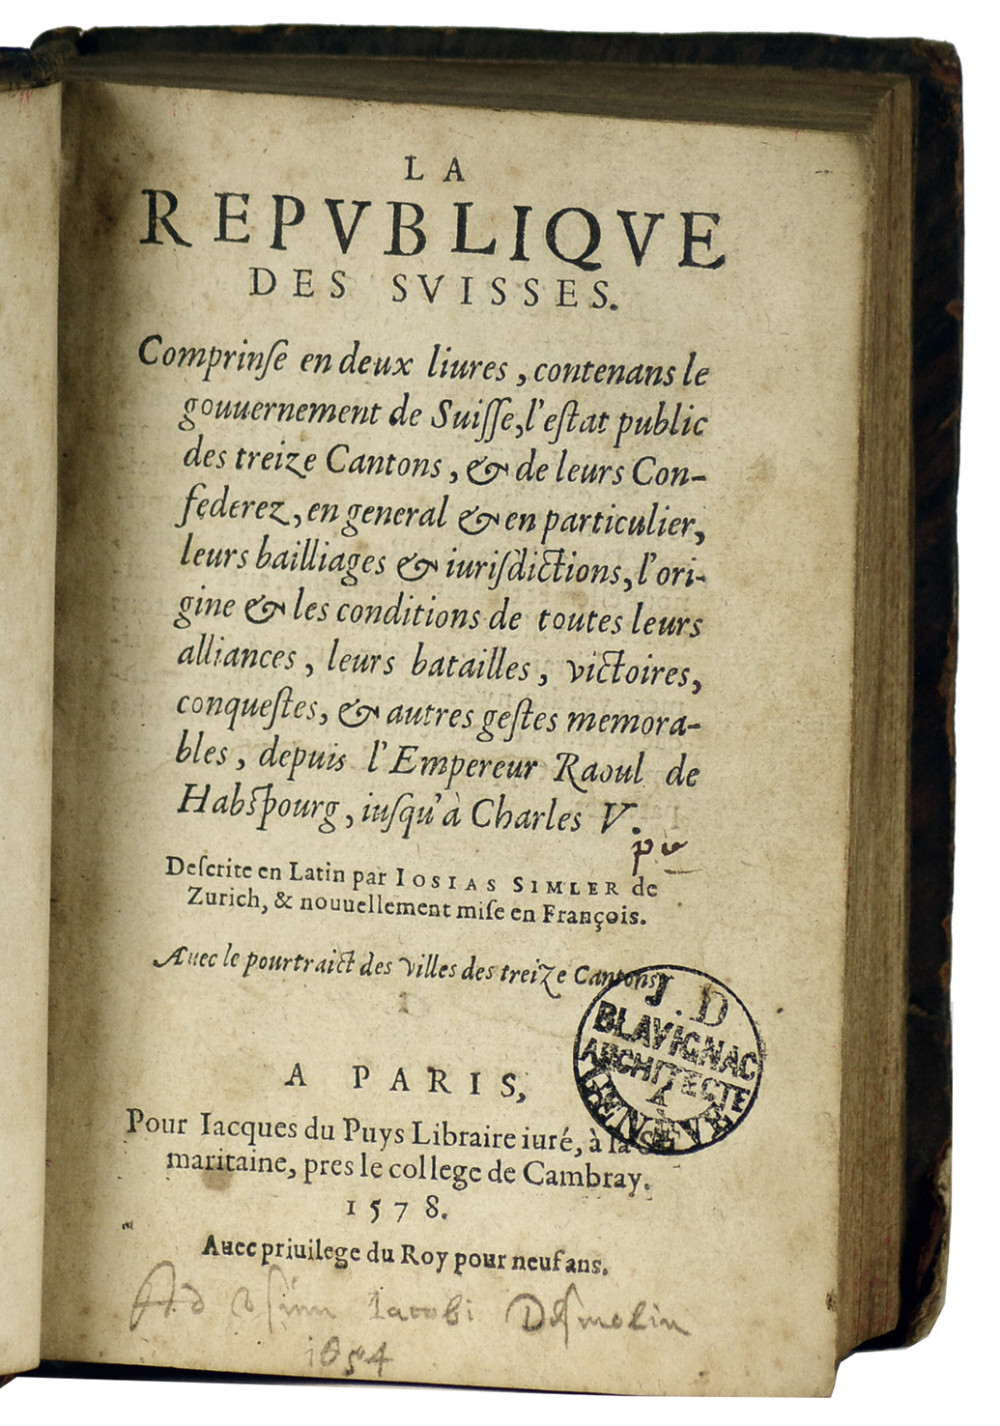 LA
REPVBLIQVE
DES SVISSES.
Comprinſe en deux liures, contenans le
gouuernement de Suiſſe, l'eſtat public
des treize Cantons, & de leurs Con-
federez, en general & en particulier,
leurs bailliages & iuriſdictions, l'ori-
gine & les conditions de toutes leurs
alliances, leurs batailles, victoires,
conqueſtes, & autres geſtes memora-
bles, depuis l'Empereur Raoul de
Habſpourg, iuſqu'à Charles V.
Deſcrite en Latin par IOSIAS SIMLER de
Zurich, & nouuellement miſe en François.
Auec le pourtraict des villes des treize Cantons
J. D
BLAVIGNAC
ARCHITECTE
A PARIS,
Pour Iacques du Puys Libraire iuré, à la
maritaine, pres le college de Cambray.
1578.
Auec priuilege du Roy pour neuf ans.
Ad Iacobi
1654